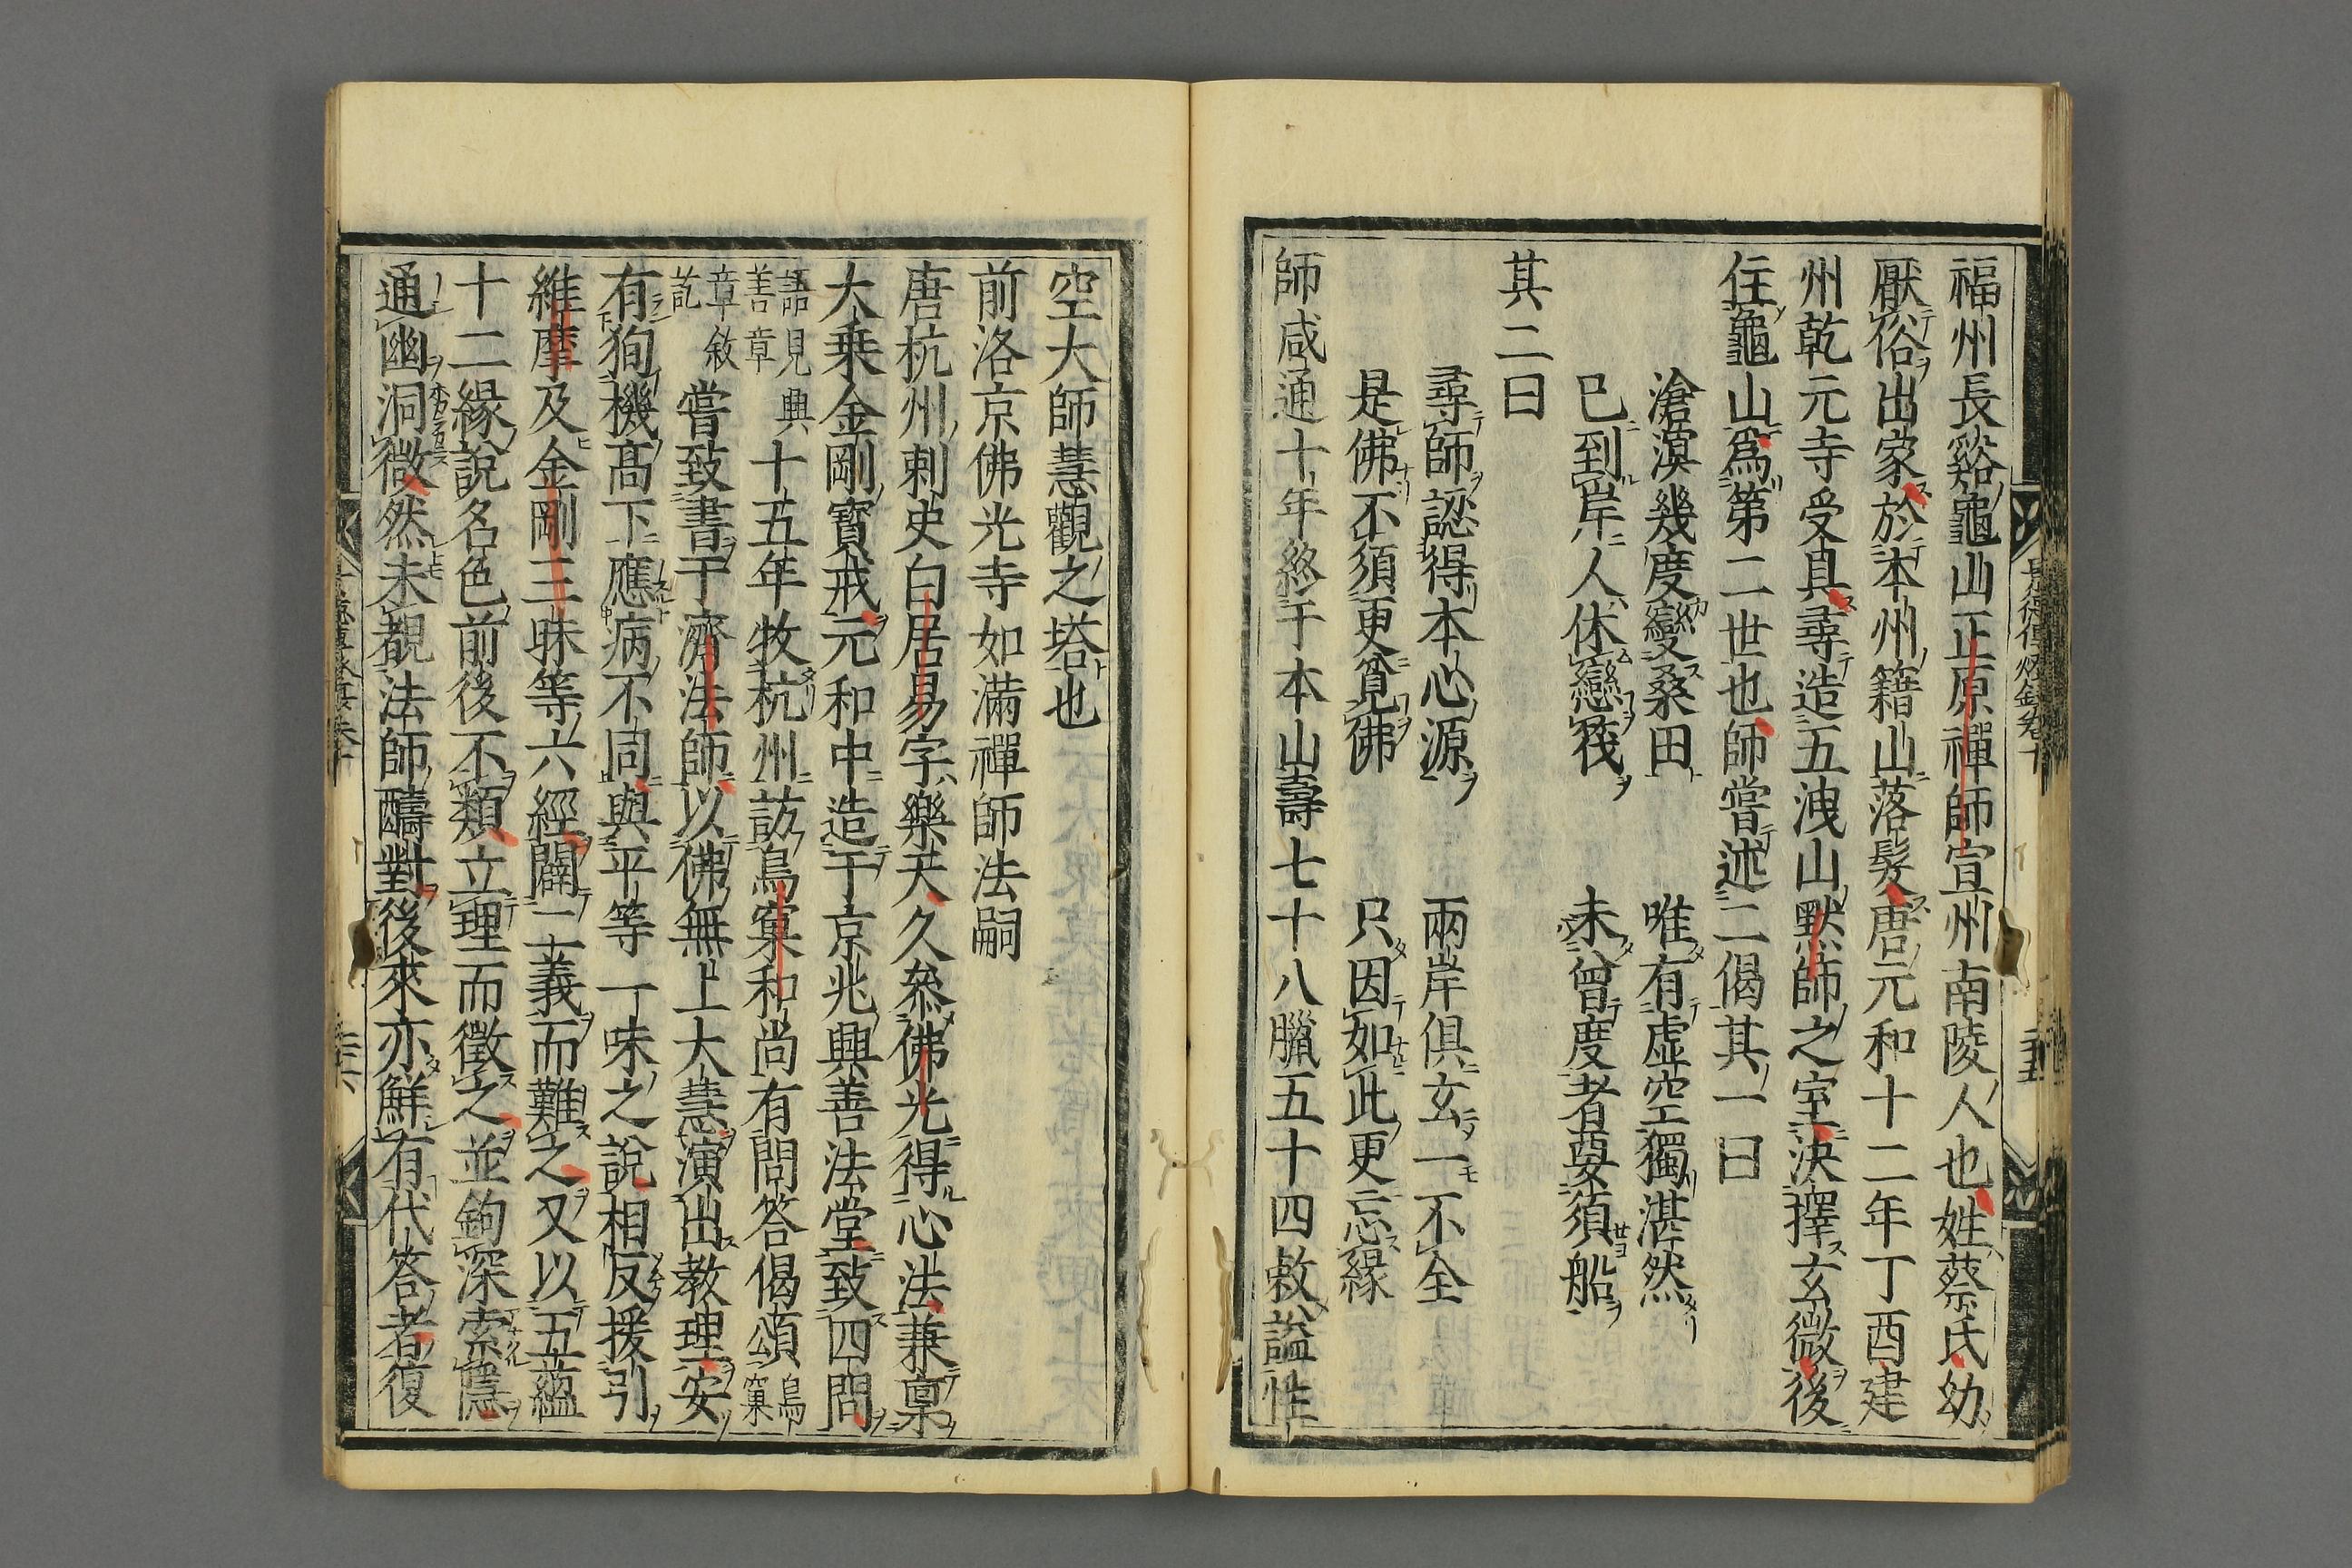 福州長谿龜山正原禪師宣州南陵人也姓蔡氏幼
厭俗出家於本州籍山落髮唐元和十二年丁酉建
州乾元寺受具尋造五洩山默師之室決擇玄微後
住龜山爲第二世也師嘗述二偈其一曰
滄溟幾度變桑田　唯有虛空獨湛然
已到岸人休戀筏　未曾度者要須船
其二曰
尋師認得本心源　兩岸俱玄一不全
是佛不須更覓佛　只因如此更忘緣
師咸通十年終于本山壽七十八臘五十四敕諡性
空大師慧觀之塔也
前洛京佛光寺如滿禪師法嗣
唐杭州刺史白居易字樂天久參佛光得心法兼稟
大乘金剛寶戒元和中造于京兆興善法堂致四問
語見興善章十五年牧杭州訪鳥窠和尚有問答偈頌鳥窠
章敘訖嘗致書于濟法師以佛無上大慧演出教理安
有徇機高下應病不同與平等一味之說相反援引
維摩及金剛三昧等六經闢二義而難之又以五蘊
十二緣說名色前後不類立理而徵之並鉤深索隱
通幽洞微然未覩法師疇對後來亦鮮有代答者復
景德傳燈錄卷十
二十五